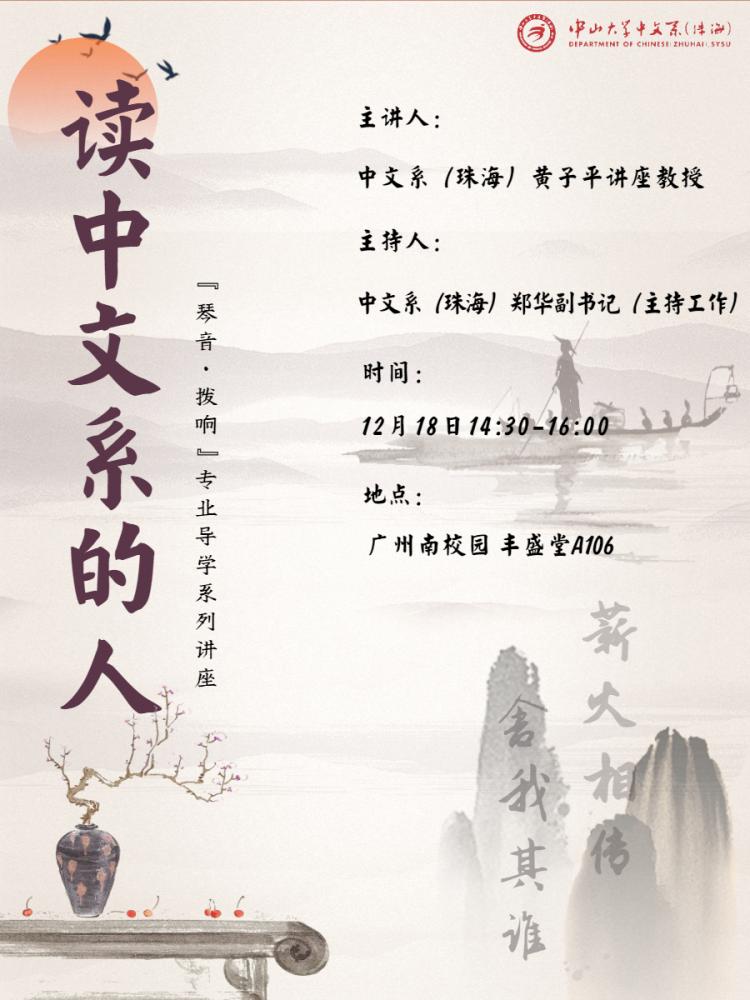 中山大学中文系(珠海)
DEPARTMENT OF CHINESE(ZHUHAI),SYSU
读中文系的人
『琴音·拨响』专业导学系列讲座
主讲人：
中文系（珠海）黄子平讲座教授
主持人：
中文系（珠海）郑华副书记（主持工作）
时间：
12月18日14:30-16:00
地点：
广州南校园 丰盛堂A106
薪火相传
舍我其谁